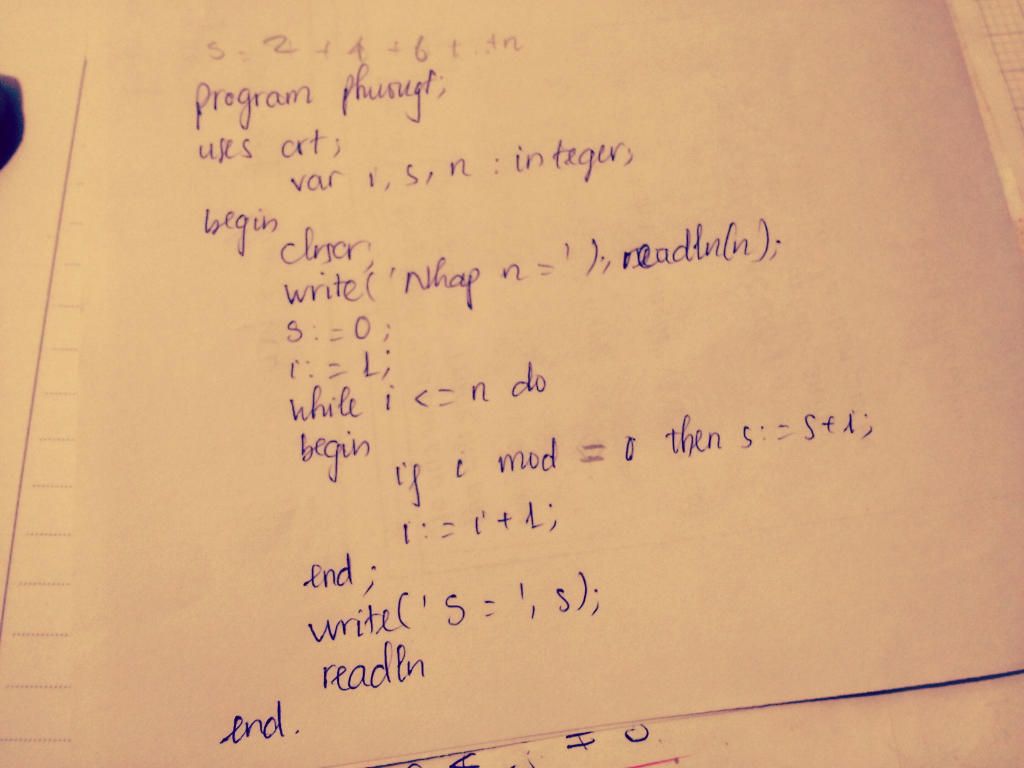 S = 2 + 4 + 6 + ...+n
program phuongt;
uses crt;
var i, s, n : integer;
begin
clrscr;
write('Nhap n = '); readln(n);
s := 0;
i := 1;
while i <= n do
begin
if i mod = 0 then s := s + i;
i := i + 1;
end;
write('S = ', s);
readln
end.